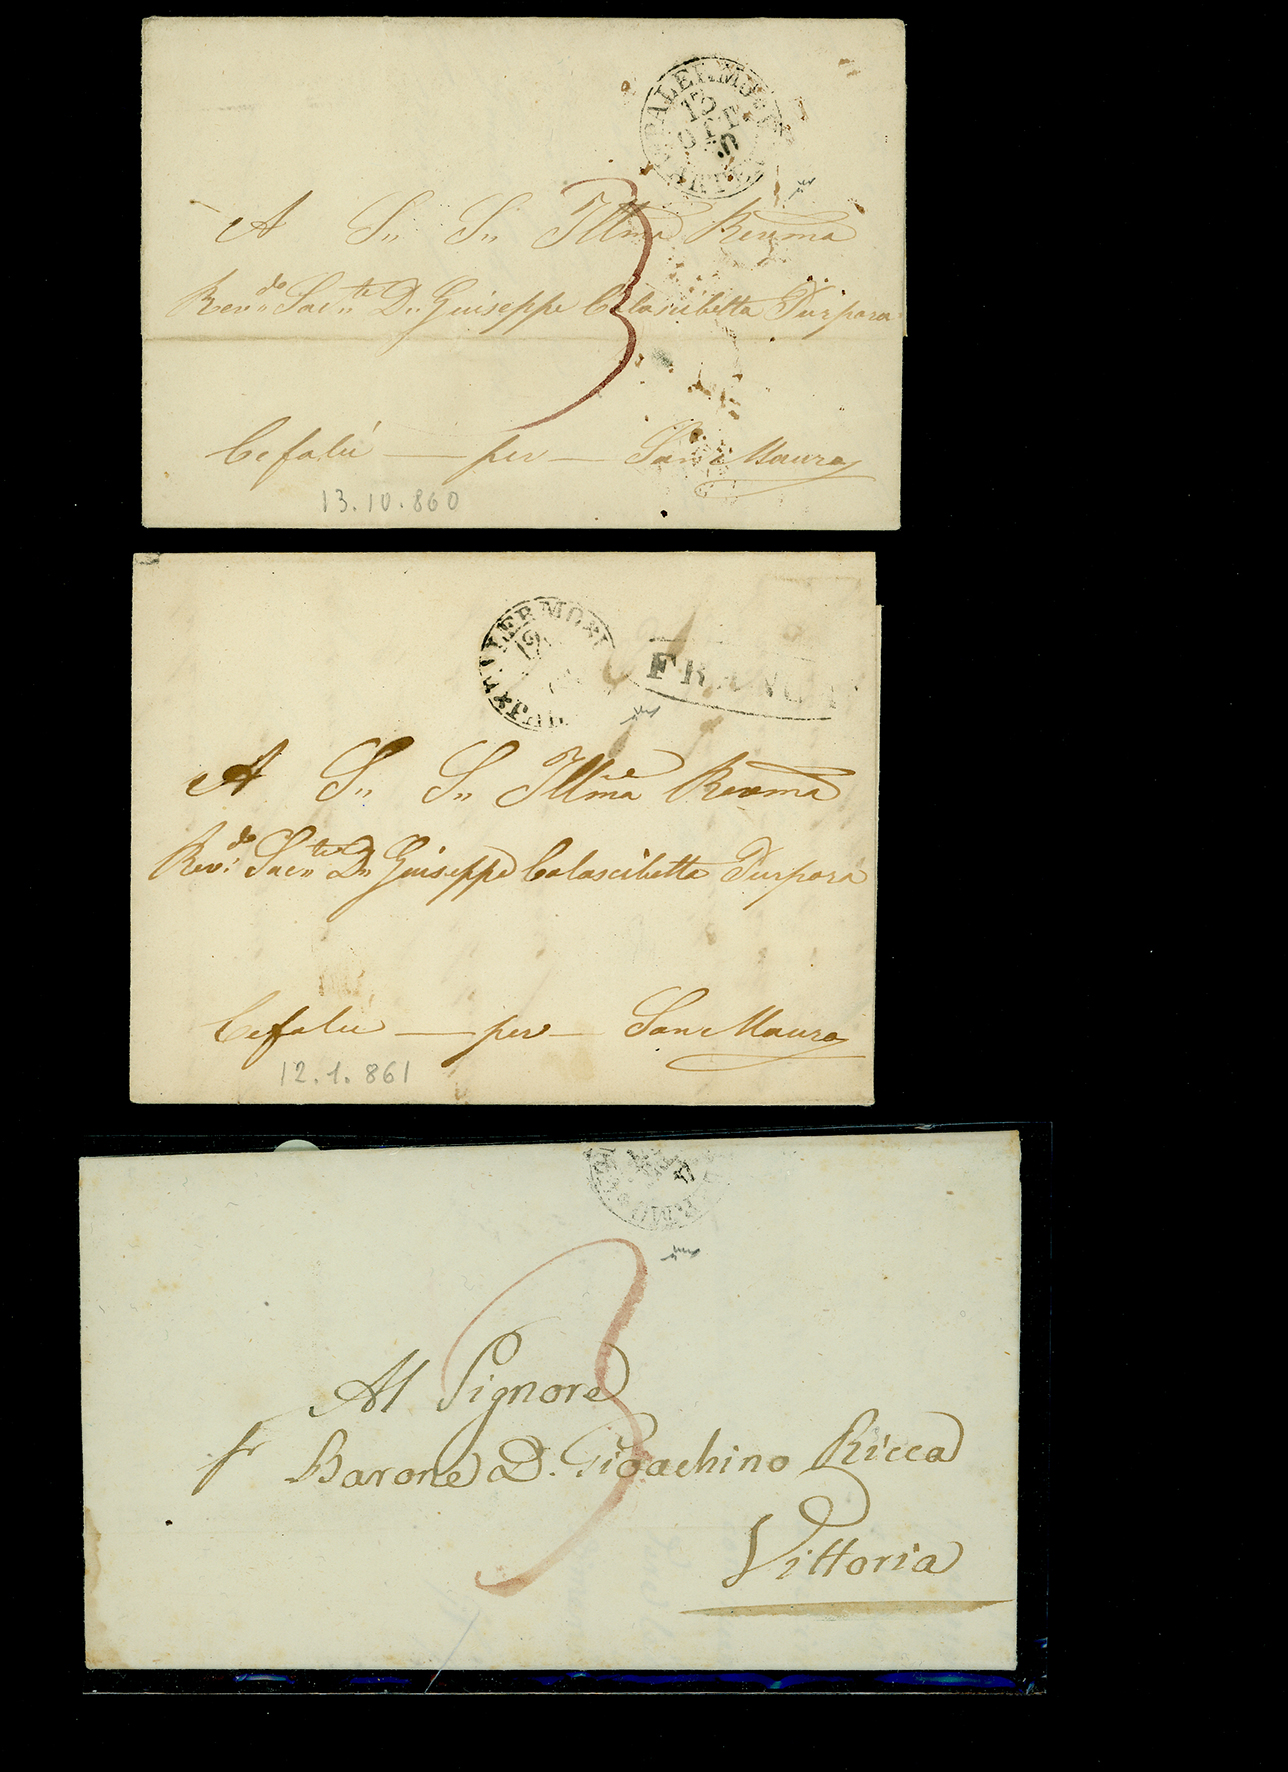 PALERMO
12
3
A S.,, S.,, Illma Revma
Rev.do Sac.te D.,, Giuseppe Calascibetta Purpora
Cefalù — per — San Mauro
13.10.860
12
FRANCA
A S.,, S.,, Illma Revma
Rev.do Sac.te D.,, Giuseppe Calascibetta Purpora
Cefalù — per — San Mauro
12.1.861
3
Al Signore
Barone D. Gioachino Ricca
Vittoria